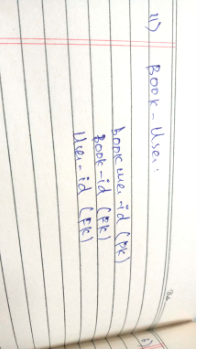 11) Book-User.
bookuser-id (PK)
Book-id (FK)
User-id (FK)